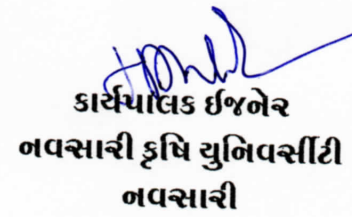 કાર્યપાલક ઈજનેર
નવસારી કૃષિ યુનિવર્સીટી
નવસારી